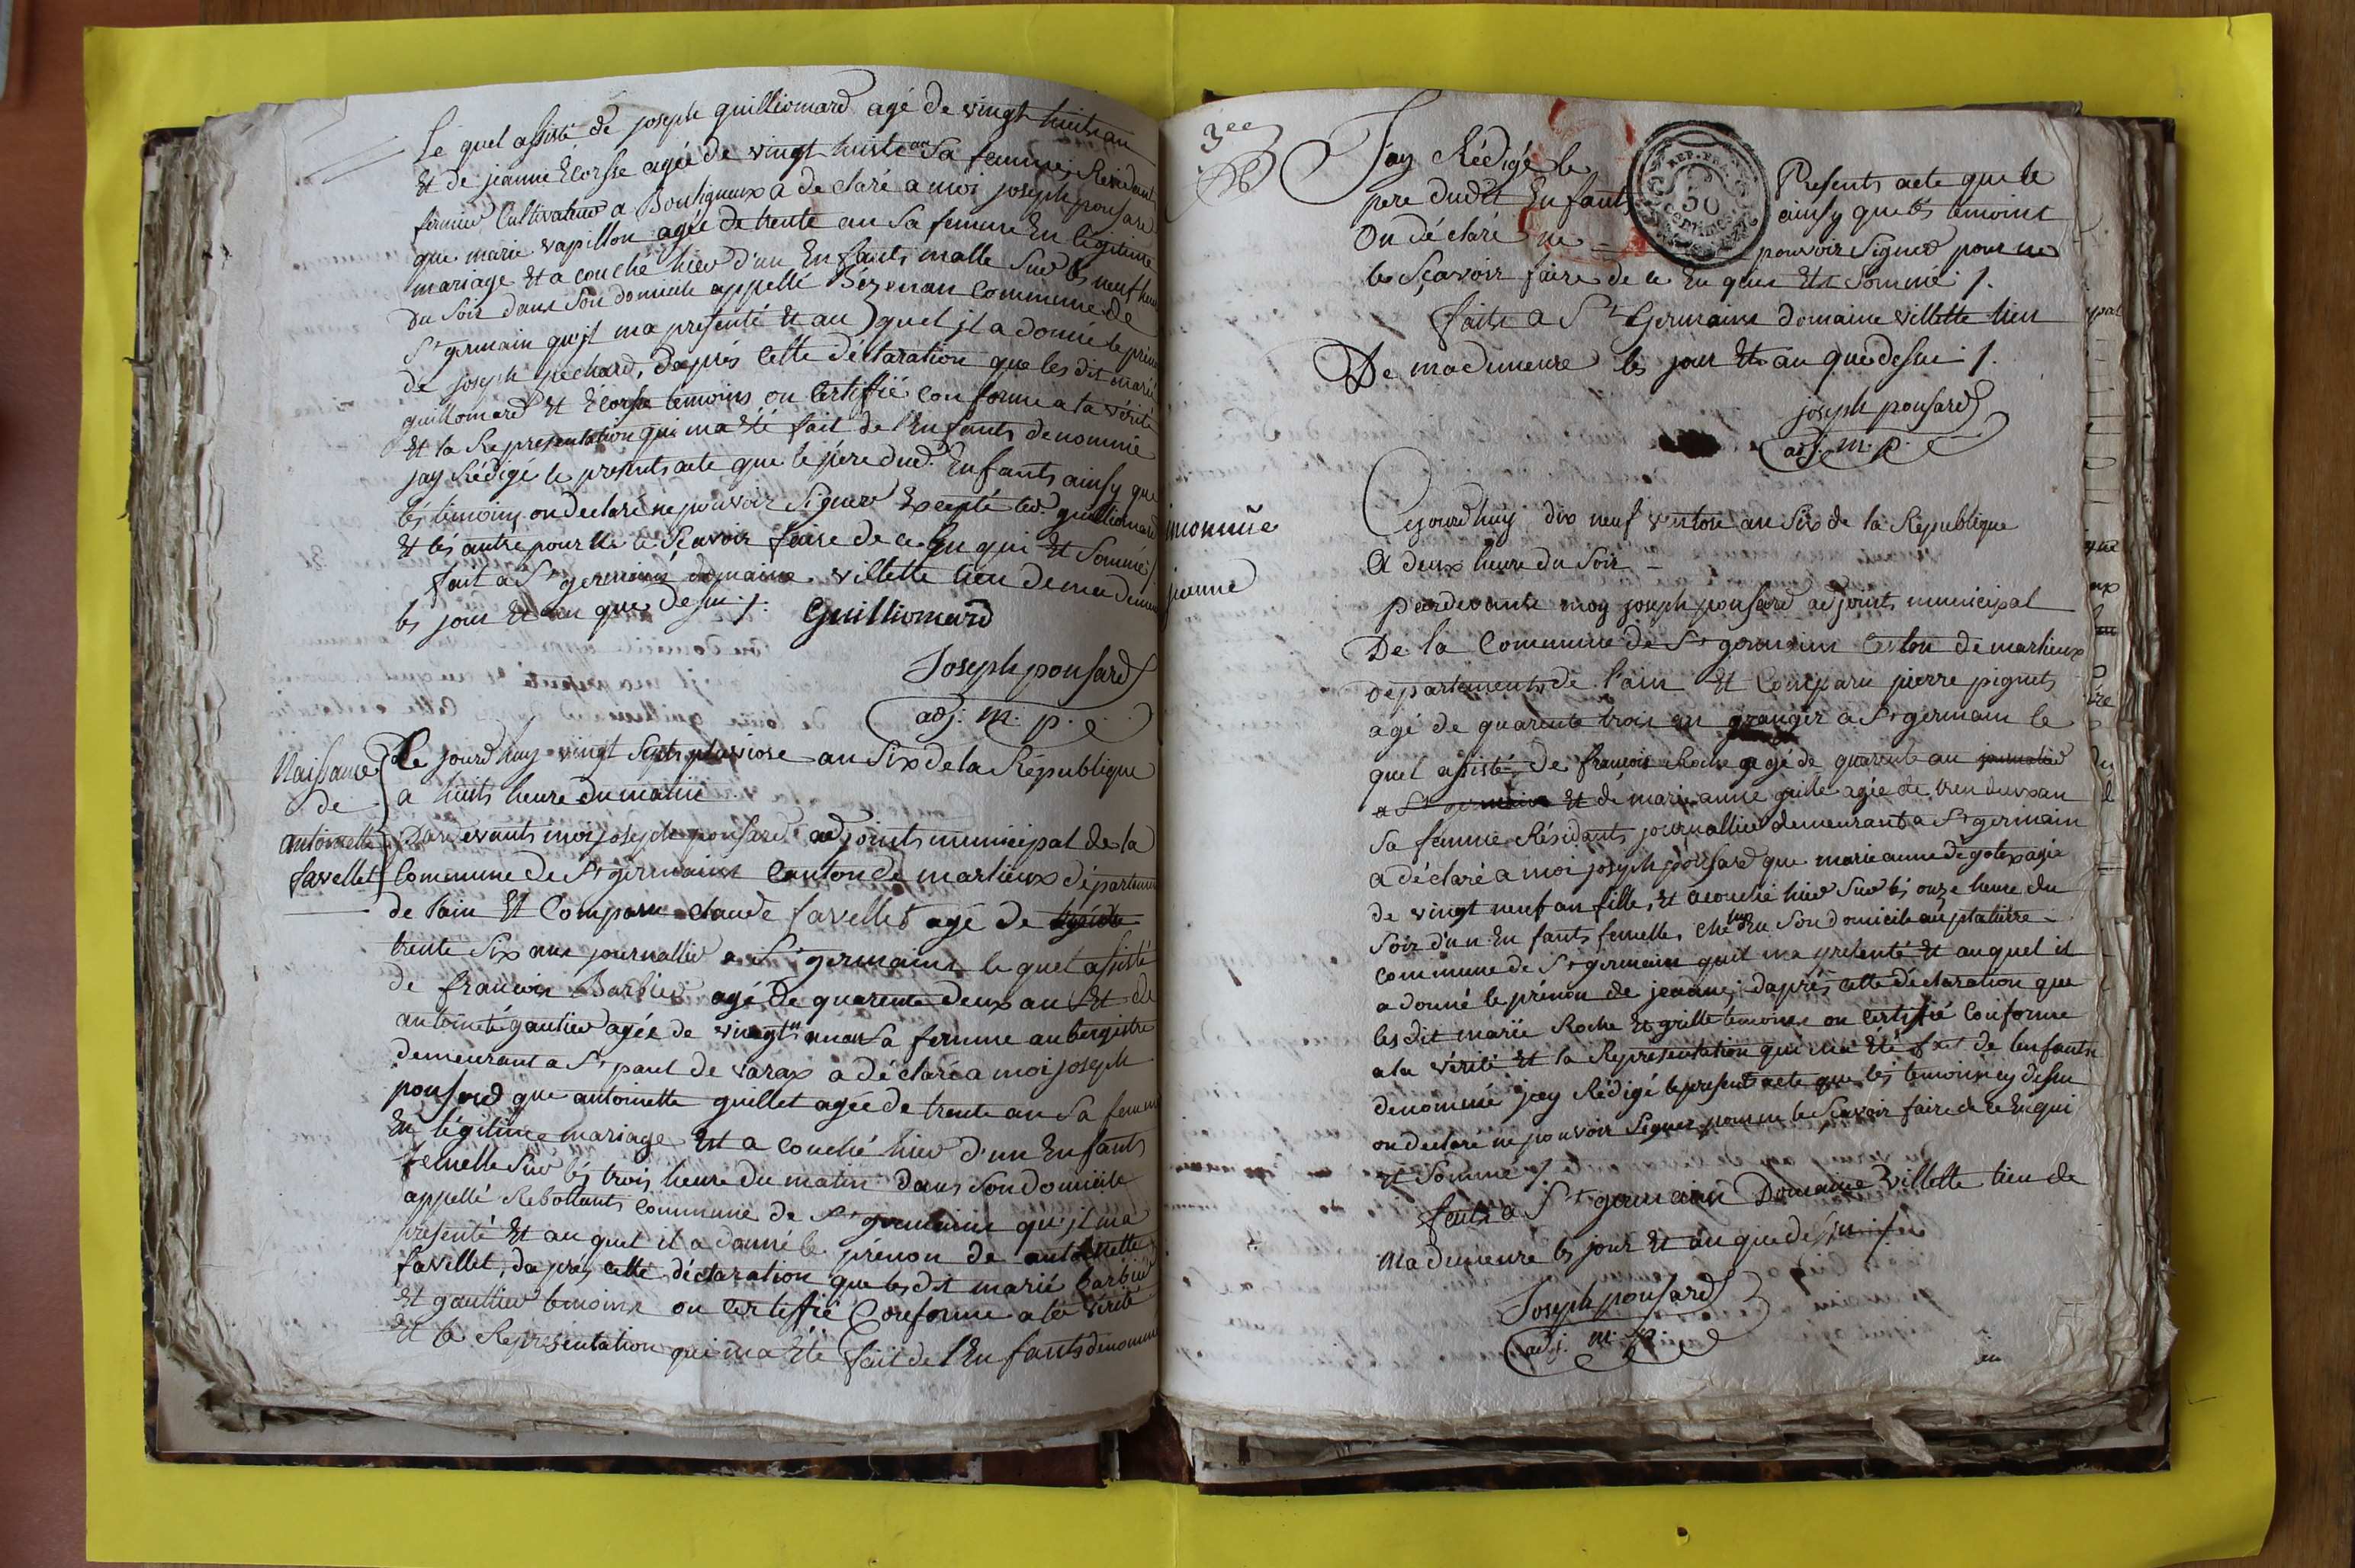 Le quel assisté de joseph guilliomard agé de vingt huit an
Et de jeanne Ecorsse agée de vingt huits an Sa femme Residant
fermier Cultivateur a Bouligneux a declaré a moi joseph ponsard
que marie vapillon agée de trente an Sa femme En légitime
mariage Et a couché hier d'un Enfants malle Sur les neuf heure
Du Soir dans Son domicile appellé Bézenan Commune de
St germain qu'il ma presenté Et au quel il a donné le prénom
de joseph pechard, daprés Cette déclaration que les dit marié
guilliomard Et Ecorsse temoins on Certiffié conforme a la vérité
Et la Representation qui ma été fait de l'Enfants denommé
jay Rédigé le presents acte que le père dud. Enfants ainsy que
les temoins on declaré ne pouvoir Signer Excepté led. guilliomard
Et les autre pour ne le Scavoir faire de ce En qui Et Sommé
fait a St germains domaine villette lieu de ma demeure
les jour Et an que desu ./.
Guilliomard
Joseph ponsard
adj. m. p.
Naissance
de
antoinette
favellet
Ce jourd'huy vingt Septs pluviose an Six de la République
a huits heure du matin
Pardevants moi joseph ponsard adjoints municipal de la
Commune de St germains Canton de marlieux départements
de l'ain Et Comparu claude favellet agé de
trente Six ans journallier a St germains le quel assisté
de francois Barbier agé de quarente deux an Et de
antoineté gautier agée de vingt neuf an Sa femme aubergistre
demeurant a St paul de varax a déclaré a moi joseph
ponsard que antoinette guillet agée de trente an Sa femme
En légitime mariage Et a couché hier d'un Enfants
femelle Sur les trois heure du matin dans Son domicile
appellé Rebottants commune de St germains qu'il ma
presenté Et au quel il a donné le prénom de antoinette
favellet, daprés cette déclaration que les dit marié barbier
Et gautier temoins on Certiffié Conforme a la vérité
Et la Representation qui ma Eté fait de l'Enfants denommé
3ee
Jay Rédigé le Presents acte que le
pere dudit Enfants ainsy que les temoins
On déclaré ne pouvoir Signer pour ne
le Sçavoir faire de ce En quis Et Sommé /.
REP. FRA.
50
centimes
faits a St Germains domaine villette lieu
De ma demeure les jour Et an que desus /.
joseph ponsard
adj. m. p.
inconnue
jeanne
Cejourd'huy dix neuf ventose an Six de la Republique
A deux heure du Soir
Pardevants moy joseph ponsard adjoints municipal
De la Commune de St germain Canton de marlieux
départements de l'ain Et Comparu pierre pignets
agé de quarente trois an granger a St germain le
quel assisté, de francois Roche agé de quarente an journalier
a St germain Et de marie anne grille agée de tren deux an
Sa femme Résidants journallier demeurant a St germain
a déclaré a moi joseph ponsard que marie anne degotex agée
de vingt neuf an fille, Et acouché hier Sur les onze heure du
Soir d'un Enfants femelle, Chés luy En Son domicile au platierre
commune de St germain qu'il ma presenté Et au quel il
a donné le prénom de jeanne; daprés cette déclaration que
les dit marié Roche Et grille temoins on Certiffié Conforme
a la vérité Et la Représentation qui ma Eté fait de lenfants
denommé jay Rédigé le presents acte que les temoins cy desu
on declaré ne pouvoir Signer pour ne le Sçavoir faire de ce En qui
Et Sommé /.
faits a St germains Domaine villette lieu de
Ma demeure les jour Et an que desu
Joseph ponsard
adj. m. p.